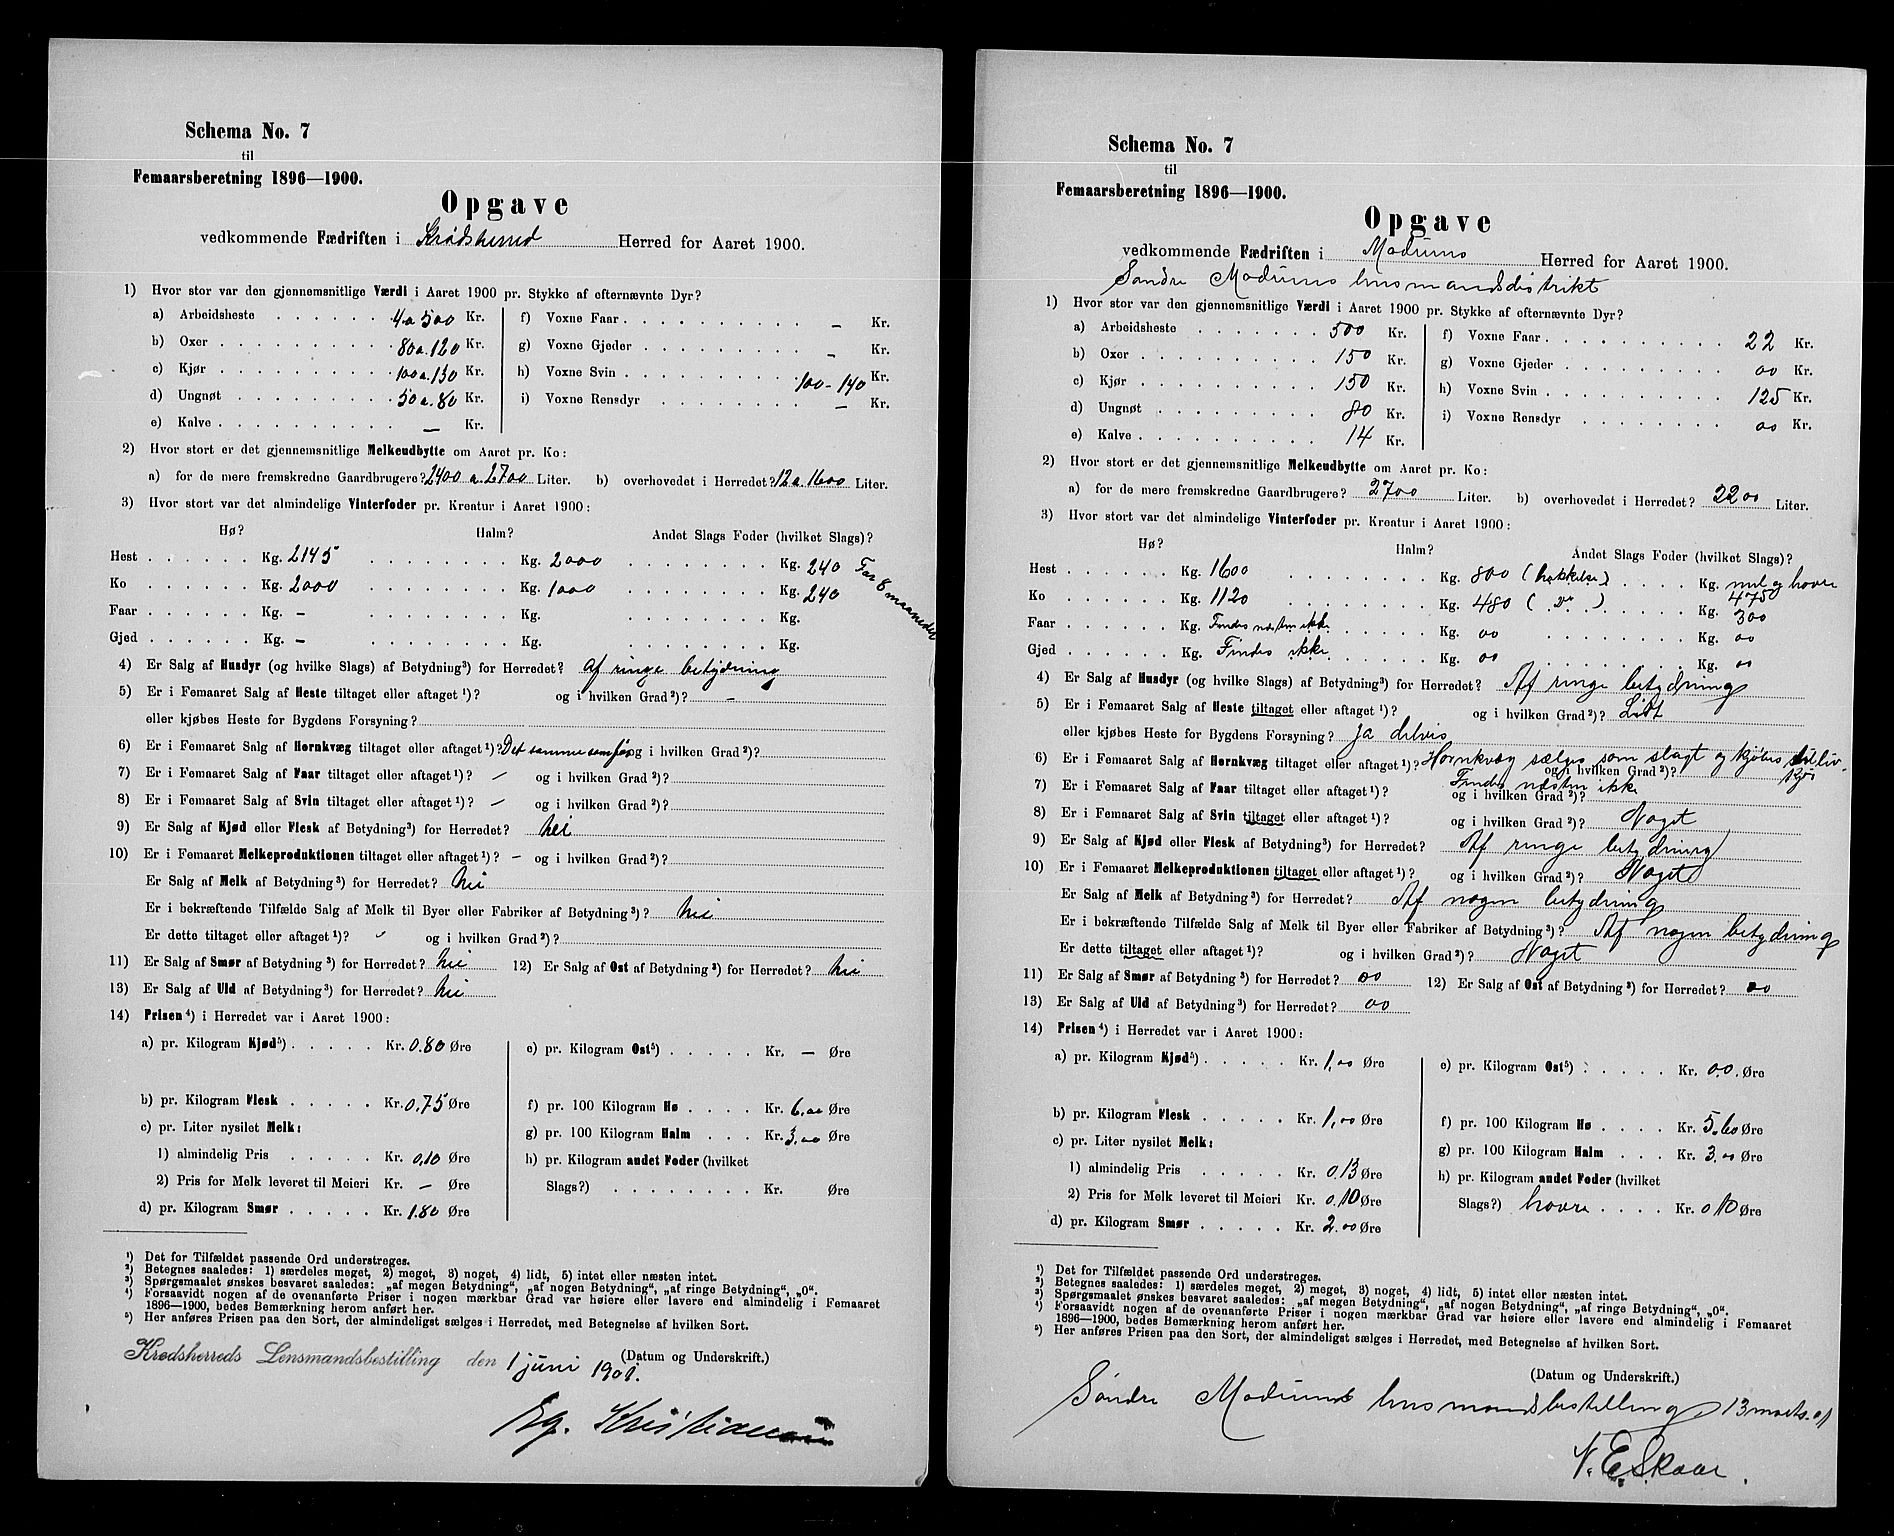 Schema No. 7
til
Femaarsberetning 1896—1900.
Opgave
vedkommende Fædriften i Krødsherred Herred for Aaret 1900.
1) Hvor stor var den gjennemsnitlige Værdi i Aaret 1900 pr. Stykke af efternævnte Dyr?
a) Arbeidsheste . . . . . . 4 a 500 Kr.
b) Oxer . . . . . . . . . . 80 a. 120 Kr.
c) Kjør . . . . . . . . . . 100 a. 130 Kr.
d) Ungnøt . . . . . . . . . 50 a. 80 Kr.
e) Kalve . . . . . . . . . . — Kr.
f) Voxne Faar . . . . . . . . . . — Kr.
g) Voxne Gjeder . . . . . . . . . — Kr.
h) Voxne Svin . . . . . . . . . . 100 - 140 Kr.
i) Voxne Rensdyr . . . . . . . . — Kr.
2) Hvor stort er det gjennemsnitlige Melkeudbytte om Aaret pr. Ko:
a) for de mere fremskredne Gaardbrugere? 2400 a. 2700 Liter. b) overhovedet i Herredet? 12 a. 1600 Liter.
3) Hvor stort var det almindelige Vinterfoder pr. Kreatur i Aaret 1900:
Hø? Halm? Andet Slags Foder (hvilket Slags)?
Hest . . . . . . Kg. 2145 . . . . . . . . Kg. 2000 . . . . . . . . Kg. 240 For 8 maaneder
Ko . . . . . . . Kg. 2000 . . . . . . . . Kg. 1000 . . . . . . . . Kg. 240
Faar . . . . . . Kg. — . . . . . . . . Kg. . . . . . . . . Kg.
Gjed . . . . . . Kg. — . . . . . . . . Kg. . . . . . . . . Kg.
4) Er Salg af Husdyr (og hvilke Slags) af Betydning³) for Herredet? af ringe betydning
5) Er i Femaaret Salg af Heste tiltaget eller aftaget¹)? og i hvilken Grad²)? —
eller kjøbes Heste for Bygdens Forsyning?
6) Er i Femaaret Salg af Hornkvæg tiltaget eller aftaget¹)? Det samme som før og i hvilken Grad²)?
7) Er i Femaaret Salg af Faar tiltaget eller aftaget¹)? — og i hvilken Grad²)?
8) Er i Femaaret Salg af Svin tiltaget eller aftaget¹)? — og i hvilken Grad²)?
9) Er Salg af Kjød eller Flesk af Betydning³) for Herredet? Nei
10) Er i Femaaret Melkeproduktionen tiltaget eller aftaget¹)? — og i hvilken Grad²)?
Er Salg af Melk af Betydning³) for Herredet? Nei
Er i bekræftende Tilfælde Salg af Melk til Byer eller Fabriker af Betydning³)? Nei
Er dette tiltaget eller aftaget¹)? og i hvilken Grad²)?
11) Er Salg af Smør af Betydning³) for Herredet? Nei 12) Er Salg af Ost af Betydning³) for Herredet? Nei
13) Er Salg af Uld af Betydning³) for Herredet? Nei
14) Prisen⁴) i Herredet var i Aaret 1900:
a) pr. Kilogram Kjød⁵) . . . . . Kr. 0.80 Øre
b) pr. Kilogram Flesk . . . . . Kr. 0,75 Øre
c) pr. Liter nysilet Melk:
1) almindelig Pris . . . . . Kr. 0.10 Øre
2) Pris for Melk leveret til Meieri Kr. — Øre
d) pr. Kilogram Smør . . . . . Kr. 1.80 Øre
e) pr. Kilogram Ost⁵) . . . . . Kr. — Øre
f) pr. 100 Kilogram Hø . . . . Kr. 6.00 Øre
g) pr. 100 Kilogram Halm . . . Kr. 3.00 Øre
h) pr. Kilogram andet Foder (hvilket
Slags?) . . . . . . . . Kr. Øre
¹) Det for Tilfældet passende Ord understreges.
²) Betegnes saaledes: 1) særdeles meget, 2) meget, 3) noget, 4) lidt, 5) intet eller næsten intet.
³) Spørgsmaalet ønskes besvaret saaledes: „af megen Betydning“, „af nogen Betydning“, „af ringe Betydning“, „0“.
⁴) Forsaavidt nogen af de ovenanførte Priser i nogen mærkbar Grad var høiere eller lavere end almindelig i Femaaret
1896—1900, bedes Bemærkning herom anført her.
⁵) Her anføres Prisen paa den Sort, der almindeligst sælges i Herredet, med Betegnelse af hvilken Sort.
(Datum og Underskrift.)
Krødsherreds Lensmandsbestilling den 1 juni 1901.
Eg. Kristiansen
Schema No. 7
til
Femaarsberetning 1896—1900.
Opgave
vedkommende Fædriften i Modums Herred for Aaret 1900.
Søndre Modums lensmandsdistrikt
1) Hvor stor var den gjennemsnitlige Værdi i Aaret 1900 pr. Stykke af efternævnte Dyr?
a) Arbeidsheste . . . . . . . 500 Kr.
b) Oxer . . . . . . . . . . 150 Kr.
c) Kjør . . . . . . . . . . 150 Kr.
d) Ungnøt . . . . . . . . . 80 Kr.
e) Kalve . . . . . . . . . . 14 Kr.
f) Voxne Faar . . . . . . . . . . 22 Kr.
g) Voxne Gjeder . . . . . . . . . 00 Kr.
h) Voxne Svin . . . . . . . . . . 125 Kr.
i) Voxne Rensdyr . . . . . . . . 00 Kr.
2) Hvor stort er det gjennemsnitlige Melkeudbytte om Aaret pr. Ko:
a) for de mere fremskredne Gaardbrugere? 2700 Liter. b) overhovedet i Herredet? 2200 Liter.
3) Hvor stort var det almindelige Vinterfoder pr. Kreatur i Aaret 1900:
Hø? Halm? Andet Slags Foder (hvilket Slags)?
Hest . . . . . . Kg. 1600 . . . . . . . . Kg. 800 (hakkelse) . . . . Kg. mel og havre 475
Ko . . . . . . . Kg. 1120 . . . . . . . . Kg. 480 ( Do ) . . . . . Kg. 300
Faar . . . . . . Kg. Findes næsten ikke Kg. 00 . . . . . . . . Kg. 00
Gjed . . . . . . Kg. Findes ikke Kg. 00 . . . . . . . . Kg. 00
4) Er Salg af Husdyr (og hvilke Slags) af Betydning³) for Herredet? Af ringe betydning
5) Er i Femaaret Salg af Heste tiltaget eller aftaget¹)? og i hvilken Grad²)? Lidt
eller kjøbes Heste for Bygdens Forsyning? ja delvis
6) Er i Femaaret Salg af Hornkvæg tiltaget eller aftaget¹)? Hornkvæg sælges som slagt og kjøbes til liv-kjør
og i hvilken Grad²)?
7) Er i Femaaret Salg af Faar tiltaget eller aftaget¹)? Findes næsten ikke og i hvilken Grad²)?
8) Er i Femaaret Salg af Svin tiltaget eller aftaget¹)? og i hvilken Grad²)? Noget
9) Er Salg af Kjød eller Flesk af Betydning³) for Herredet? Af ringe betydning
10) Er i Femaaret Melkeproduktionen tiltaget eller aftaget¹)? og i hvilken Grad²)? Noget
Er Salg af Melk af Betydning³) for Herredet? Af nogen betydning
Er i bekræftende Tilfælde Salg af Melk til Byer eller Fabriker af Betydning³)? Af nogen betydning
Er dette tiltaget eller aftaget¹)? og i hvilken Grad²)? Noget
11) Er Salg af Smør af Betydning³) for Herredet? 00 12) Er Salg af Ost af Betydning³) for Herredet? 00
13) Er Salg af Uld af Betydning³) for Herredet? 00
14) Prisen⁴) i Herredet var i Aaret 1900:
a) pr. Kilogram Kjød⁵) . . . . . Kr. 1,00 Øre
b) pr. Kilogram Flesk . . . . . Kr. 1,00 Øre
c) pr. Liter nysilet Melk:
1) almindelig Pris . . . . . Kr. 0.13 Øre
2) Pris for Melk leveret til Meieri Kr. 0.10 Øre
d) pr. Kilogram Smør . . . . . Kr. 2.00 Øre
e) pr. Kilogram Ost⁵) . . . . . Kr. 0.0. Øre
f) pr. 100 Kilogram Hø . . . . Kr. 5.60 Øre
g) pr. 100 Kilogram Halm . . . Kr. 3.00 Øre
h) pr. Kilogram andet Foder (hvilket
Slags?) havre . . . . Kr. 0 10 Øre
¹) Det for Tilfældet passende Ord understreges.
²) Betegnes saaledes: 1) særdeles meget, 2) meget, 3) noget, 4) lidt, 5) intet eller næsten intet.
³) Spørgsmaalet ønskes besvaret saaledes: „af megen Betydning“, „af nogen Betydning“, „af ringe Betydning“, „0“.
⁴) Forsaavidt nogen af de ovenanførte Priser i nogen mærkbar Grad var høiere eller lavere end almindelig i Femaaret
1896—1900, bedes Bemærkning herom anført her.
⁵) Her anføres Prisen paa den Sort, der almindeligst sælges i Herredet, med Betegnelse af hvilken Sort.
(Datum og Underskrift.)
Søndre Modums lensmandsbestilling 13 marts. 01
N. E. Skaar.